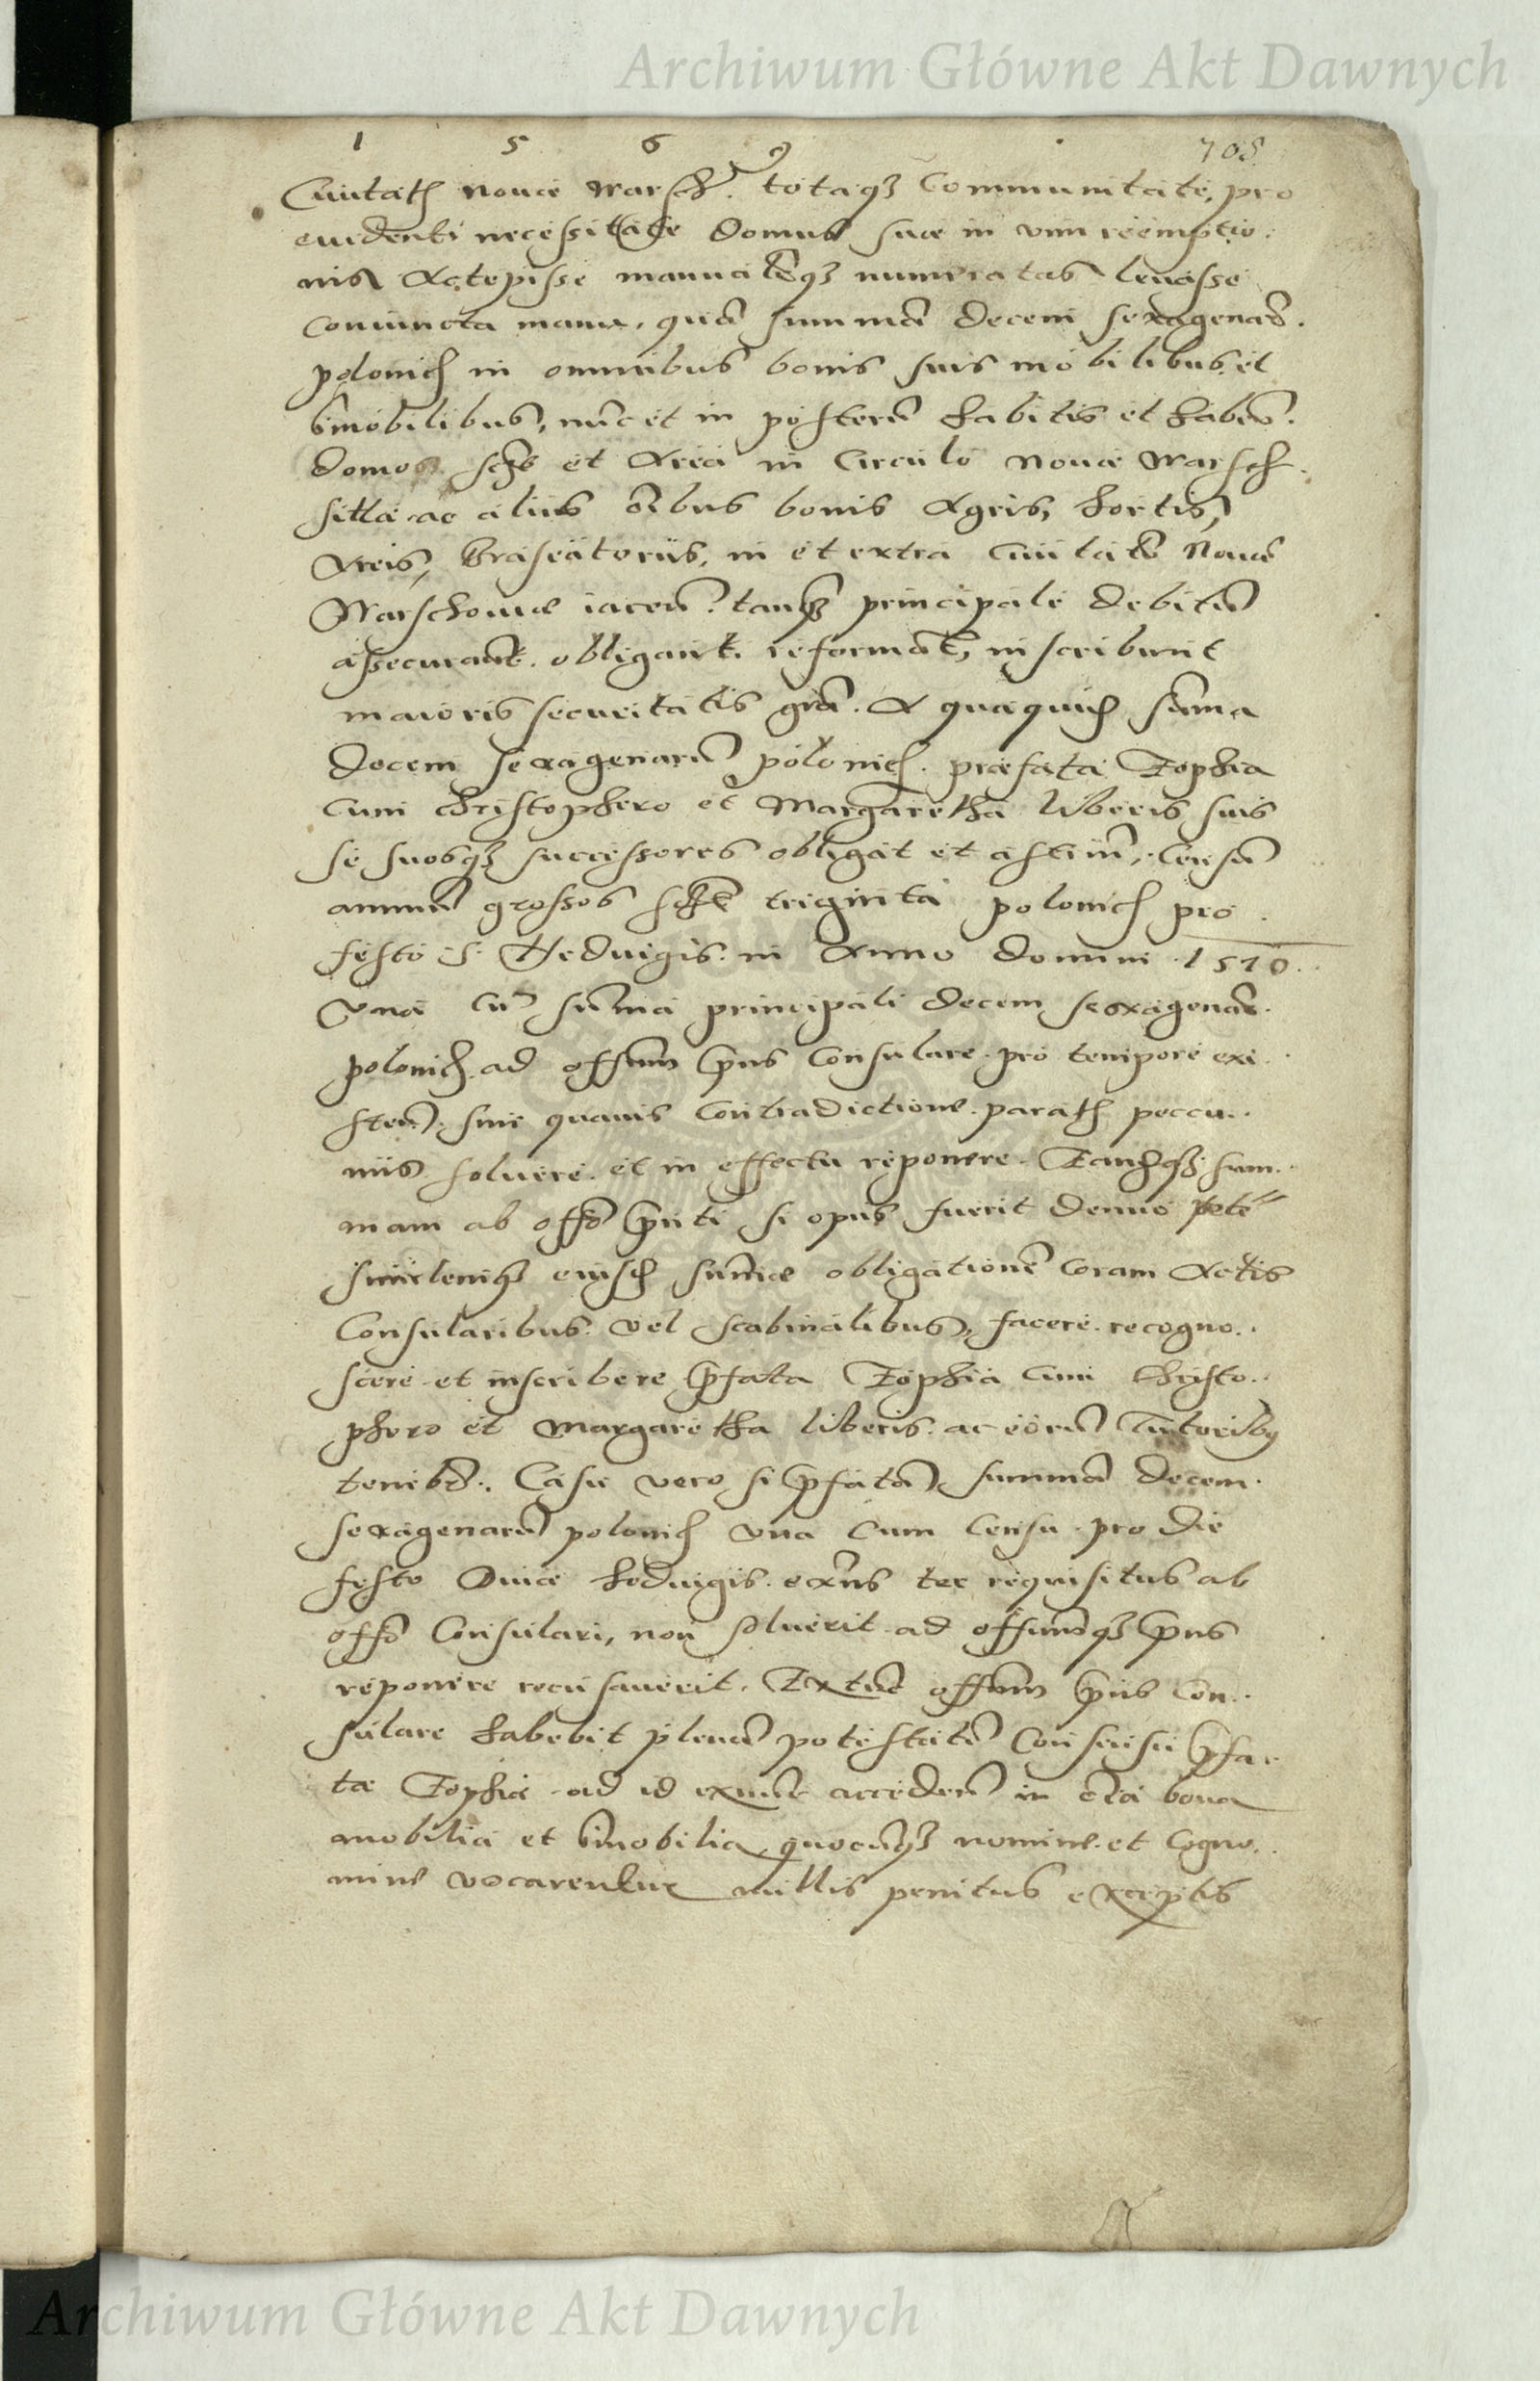 Archiwum Główne Akt Dawnych
1 5 6 9 708
Ciuitatis nouæ Warsch. totaqȝ Communitate, pro
euidenti necessitate domus suæ in vim reemptio.
nis Accepisse manualiterqȝ numeratas leuasse
coniuncta manu, quā summā decem sexagenarū.
polonich in omnibus bonis suis mobilibus et
Immobilibus, nūc et in posterū habitis et habēn.
domo scȝ et Area in Circulo Nouæ Warsch.
sitta ac aliis oībus bonis Agris, hortis,
Areis, Braseatoriis, in et extra Ciuitatē Nouæ
Warschouiæ iacen. tanqȝ principale debitū
assecurant. obligant. reformāt, inscribunt
maioris securitatis grā. A qua quidē sūma
decem sexagenarū polonich. præfata Zophia
Cum Christophero et Margaretha liberis suis
se suosqȝ successores obligat et astrin, Censū
annuū grossos triginta polonich pro
festo S. Heduigis in Anno domini 1570.
Vna cū sūma principali decem sexagenarū.
polonich. ad offium pns Consulare pro tempore exi.
sten. sine quauis Contradictione. paratis peccu.
niis soluere. et in effectu reponere. Eandēqȝ sum.
mam ab offo pnti si opus fuerit denuo pete
similemqȝ eiusdē sūmæ obligationē Coram Actis
Consularibus vel scabinalibus, facere. recogno.
scere et inscribere pfata Zophia Cum Christo.
phero et Margaretha liberis ac eorū Tutoribus
tenebr. Casu vero si pfatā summā decem
sexagenarū polonich Vna Cum Censu pro die
festo Diuæ Heduigis. exñs ter requisitus ab
offo Consulari, non soluerit ad offiumqȝ pns
reponere recusauerit. Extūc offium pns Con.
sulare habebit plenā potestatē Consensu pfa.
tæ Zophiæ ad id exnūc acceden in oīa bona
mobilia et Immobilia quocūqȝ nomine et Cogno.
mine vocarentur nullis penitus exceptis
Archiwum Główne Akt Dawnych